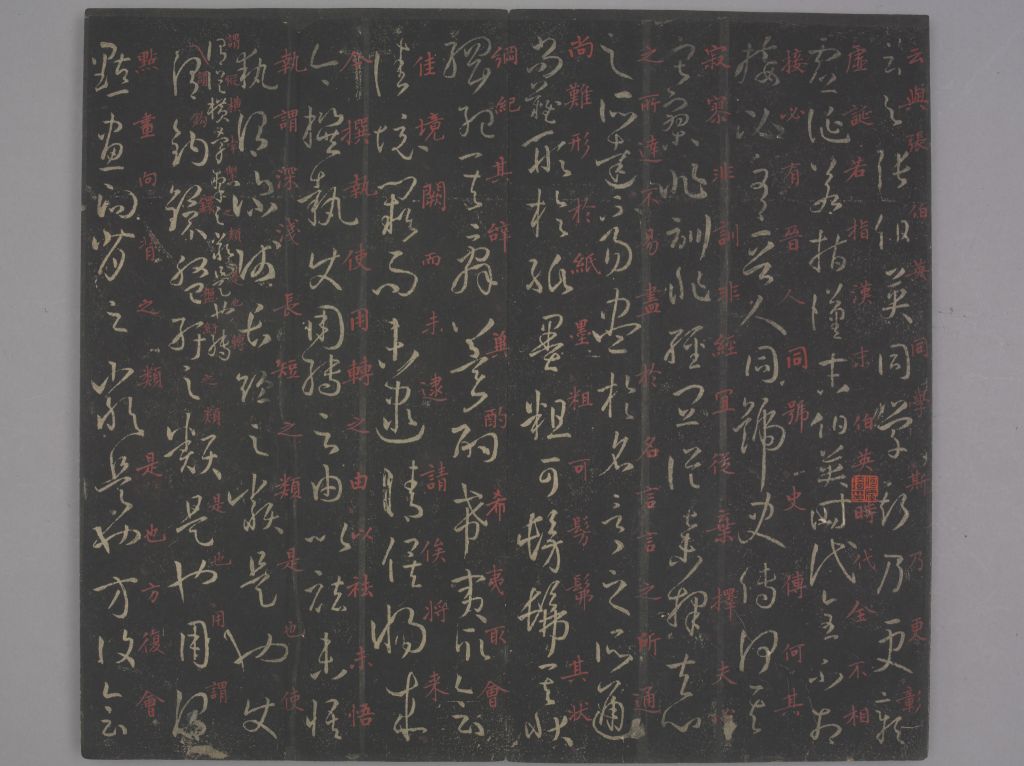 云與張伯英同學斯乃更彰
虛誕若指漢末伯英時代全不相
接必有晉人同號史傳何其
寂寥非訓非經宜從棄擇夫心
之所達不易盡於名言言之所通
尚難形於紙墨粗可髣髴其狀
綱紀其辭冀酌希夷取會
佳境闕而未逮請俟將來
今撰執使用轉之由以祛未悟
執謂深淺長短之類是也使
謂縱橫牽掣之類是也轉
謂鉤鐶盤紆之類是也用謂
點畫向背之類是也方復會